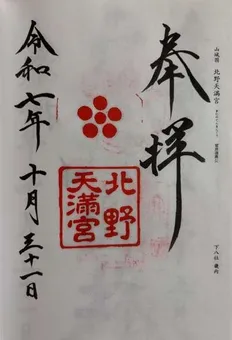 山城国 北野天満宮
奉拝
北野
天満宮
令和七年 十月 三十一日